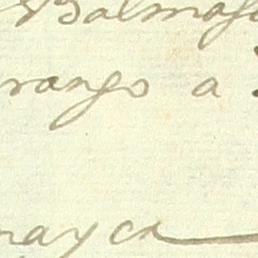 Balmase
rango a
mayca